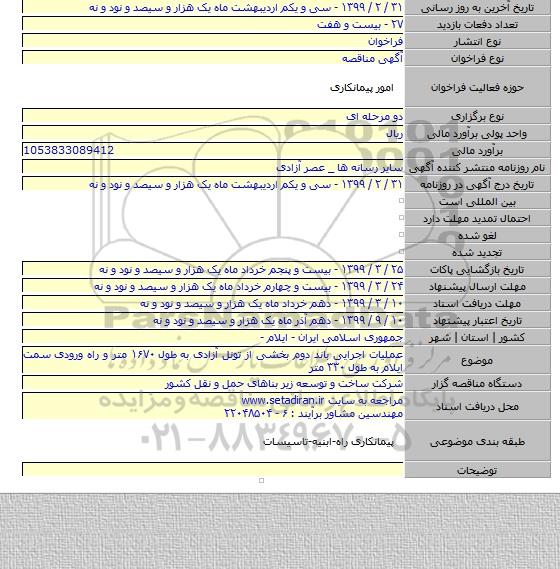 تاریخ آخرین به روز رسانی ۳۱ / ۲ / ۱۳۹۹ - سی و یکم اردیبهشت ماه یک هزار و سیصد و نود و نه
تعداد دفعات بازدید ۲۷ - بیست و هفت
نوع انتشار فراخوان
نوع فراخوان آگهی مناقصه
حوزه فعالیت فراخوان امور پیمانکاری
نوع برگزاری دو مرحله ای
واحد پولی برآورد مالی ریال
برآورد مالی 1053833089412
نام روزنامه منتشر کننده آگهی سایر رسانه ها _ عصر آزادی
تاریخ درج آگهی در روزنامه ۳۱ / ۲ / ۱۳۹۹ - سی و یکم اردیبهشت ماه یک هزار و سیصد و نود و نه
بین المللی است
احتمال تمدید مهلت دارد
لغو شده
تجدید شده
تاریخ بازگشایی پاکات ۲۵ / ۳ / ۱۳۹۹ - بیست و پنجم خرداد ماه یک هزار و سیصد و نود و نه
مهلت ارسال پیشنهاد ۲۴ / ۳ / ۱۳۹۹ - بیست و چهارم خرداد ماه یک هزار و سیصد و نود و نه
مهلت دریافت اسناد ۱۰ / ۳ / ۱۳۹۹ - دهم خرداد ماه یک هزار و سیصد و نود و نه
تاریخ اعتبار پیشنهاد ۱۰ / ۹ / ۱۳۹۹ - دهم آذر ماه یک هزار و سیصد و نود و نه
کشور | استان | شهر جمهوری اسلامی ایران - ایلام -
موضوع عملیات اجرایی باند دوم بخشی از تونل آزادی به طول ۱۶۷۰ متر و راه ورودی سمت
ایلام به طول ۳۳۰ متر
دستگاه مناقصه گزار شرکت ساخت و توسعه زیر بناهای حمل و نقل کشور
محل دریافت اسناد مراجعه به سایت www.setadiran.ir
مهندسین مشاور برآیند : ۶ - ۲۲۰۴۸۵۰۴
طبقه بندی موضوعی پیمانکاری راه-ابنیه-تاسیسات
توضیحات
۰۲۱-۸۸۳۴۹۶۷۰-۵